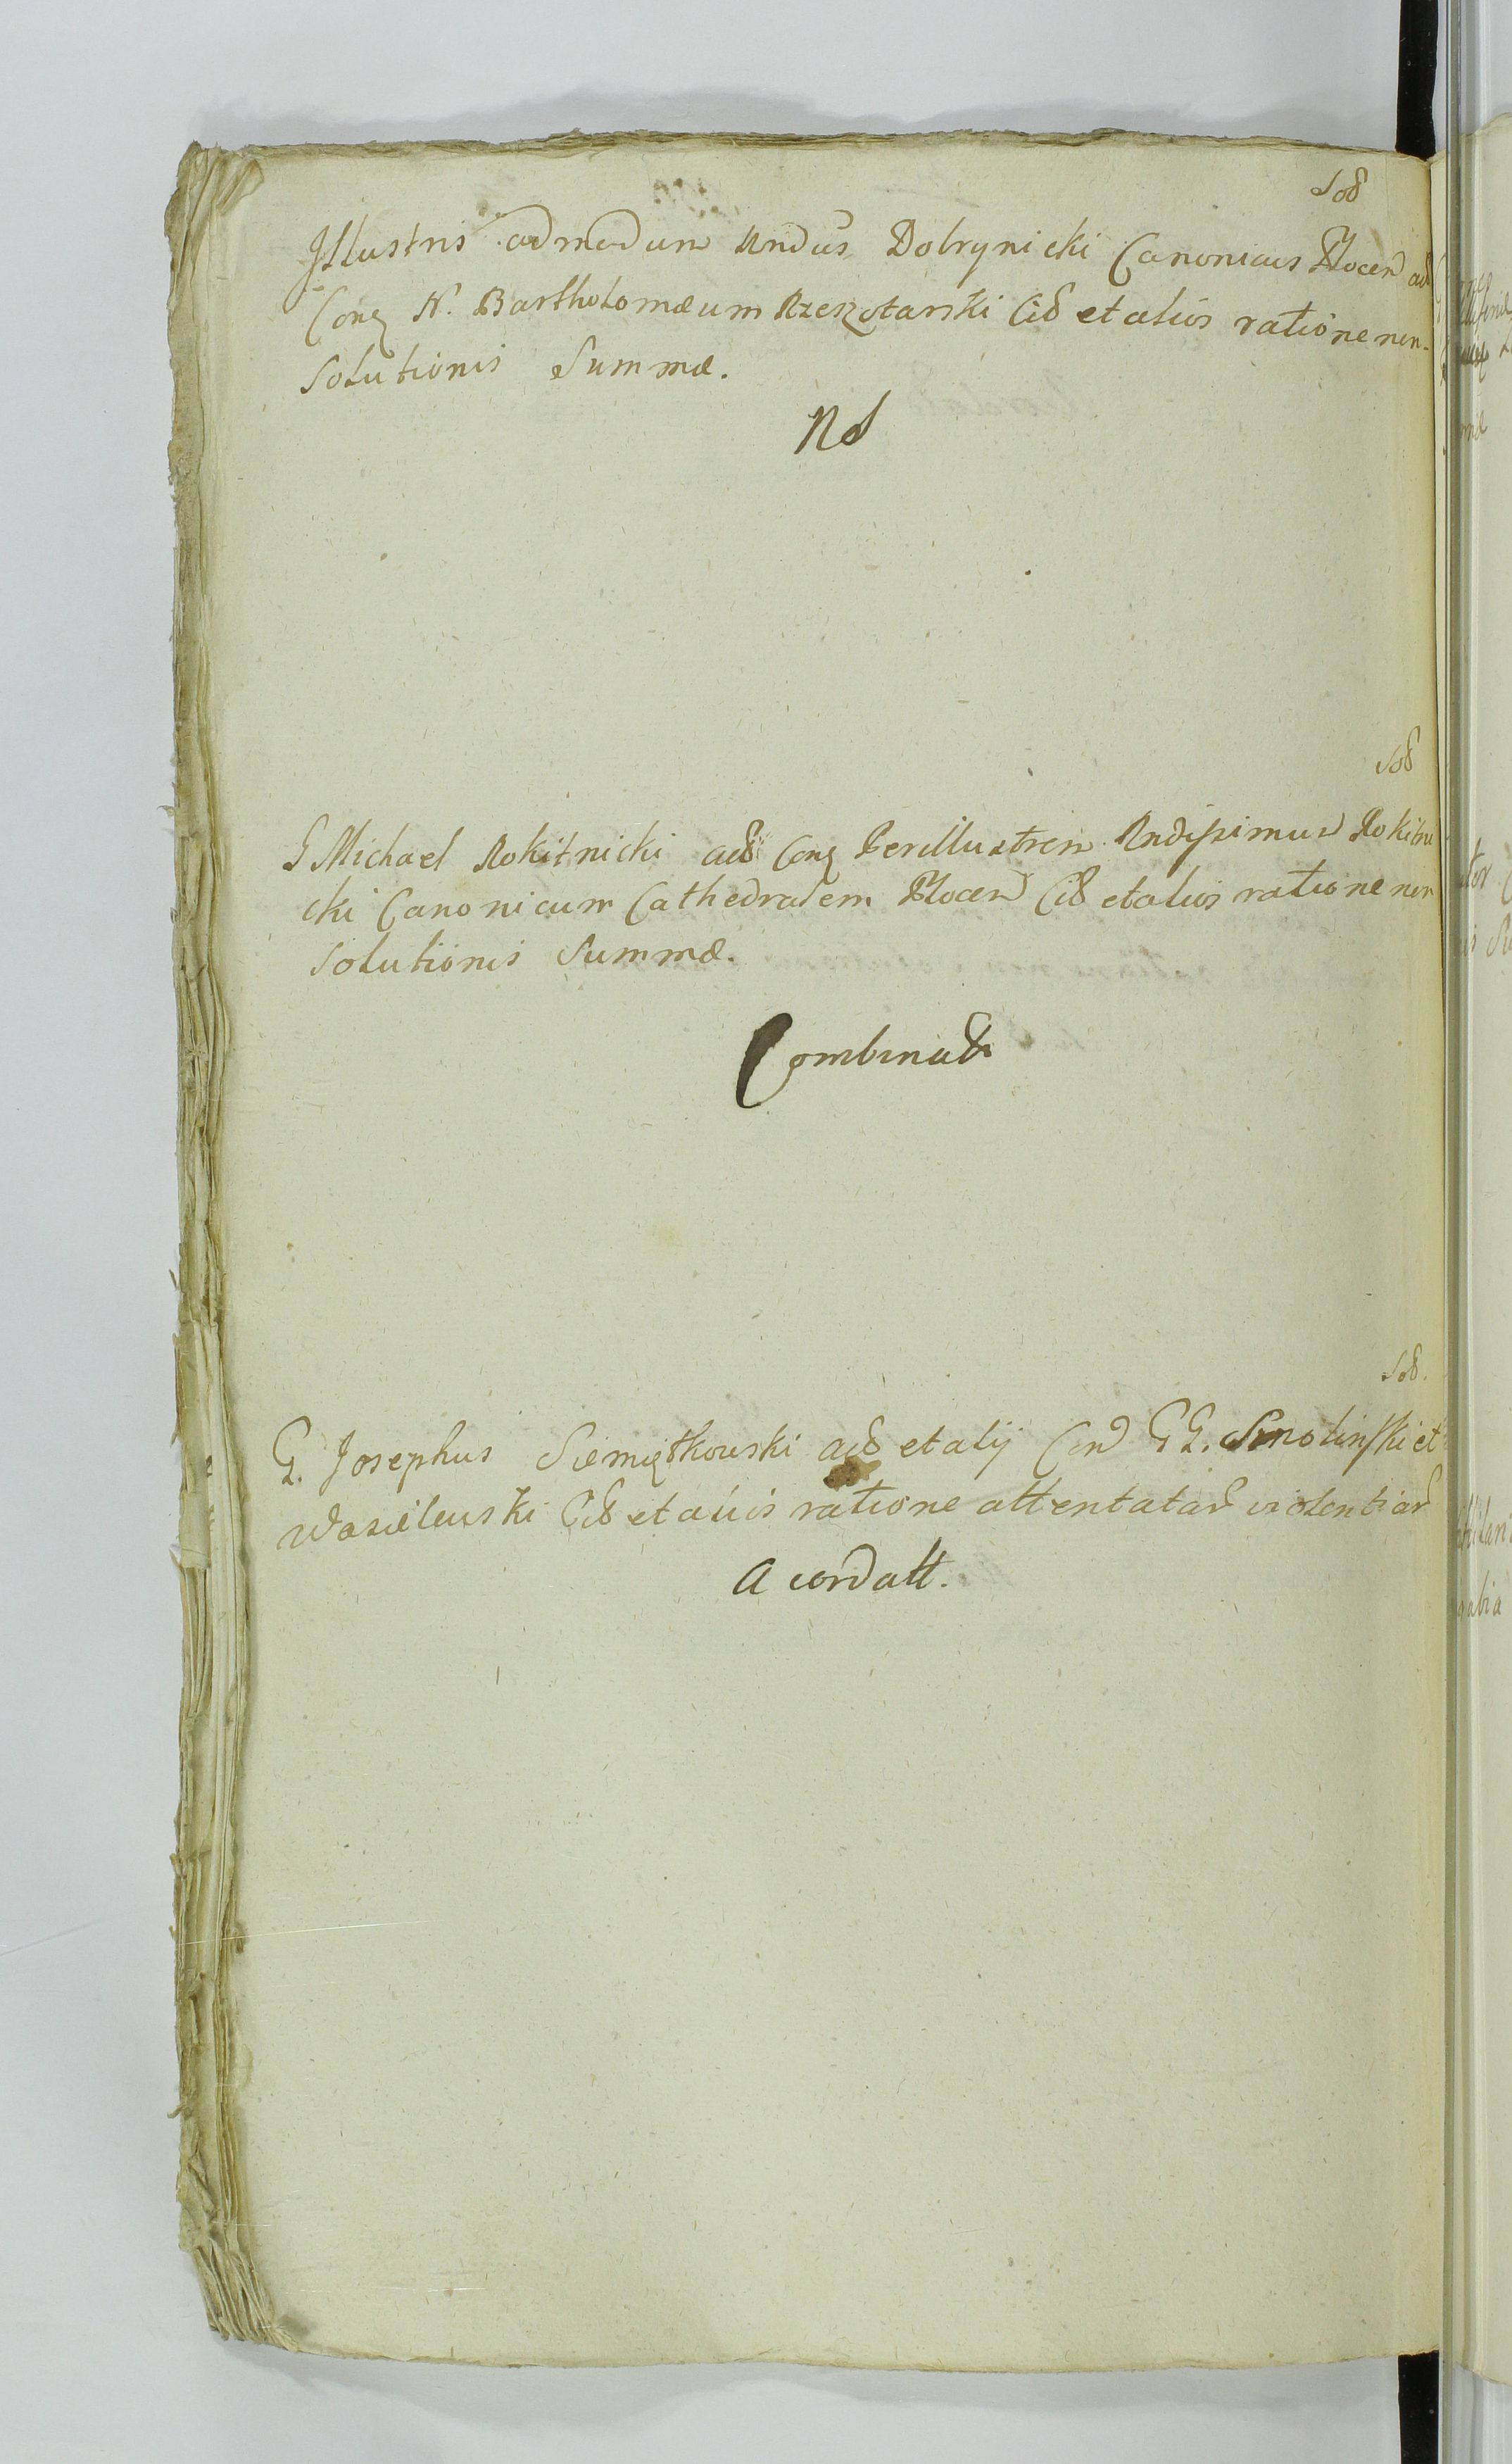 Sod
Illustris admodum Rndus Dobrynicki Canonicus Plocen ad
Con̄g N. Bartholomæum Rzeszotarski Cit et alios ratione non-
Solutionis Summæ.
Rd
Sod
G Michael Rokitnicki act Cong Perillustrem Rndissimum Rokitni
cki Canonicum Cathedralem Plocen Cit et alios ratione non
Solutionis Summæ.
Combinat
Sod.
G. Josephus Siemiątkowski act et alij Con GG. Smolinski et
Wasilewski Cit et alios ratione attentatar violentiar
Acordatt.